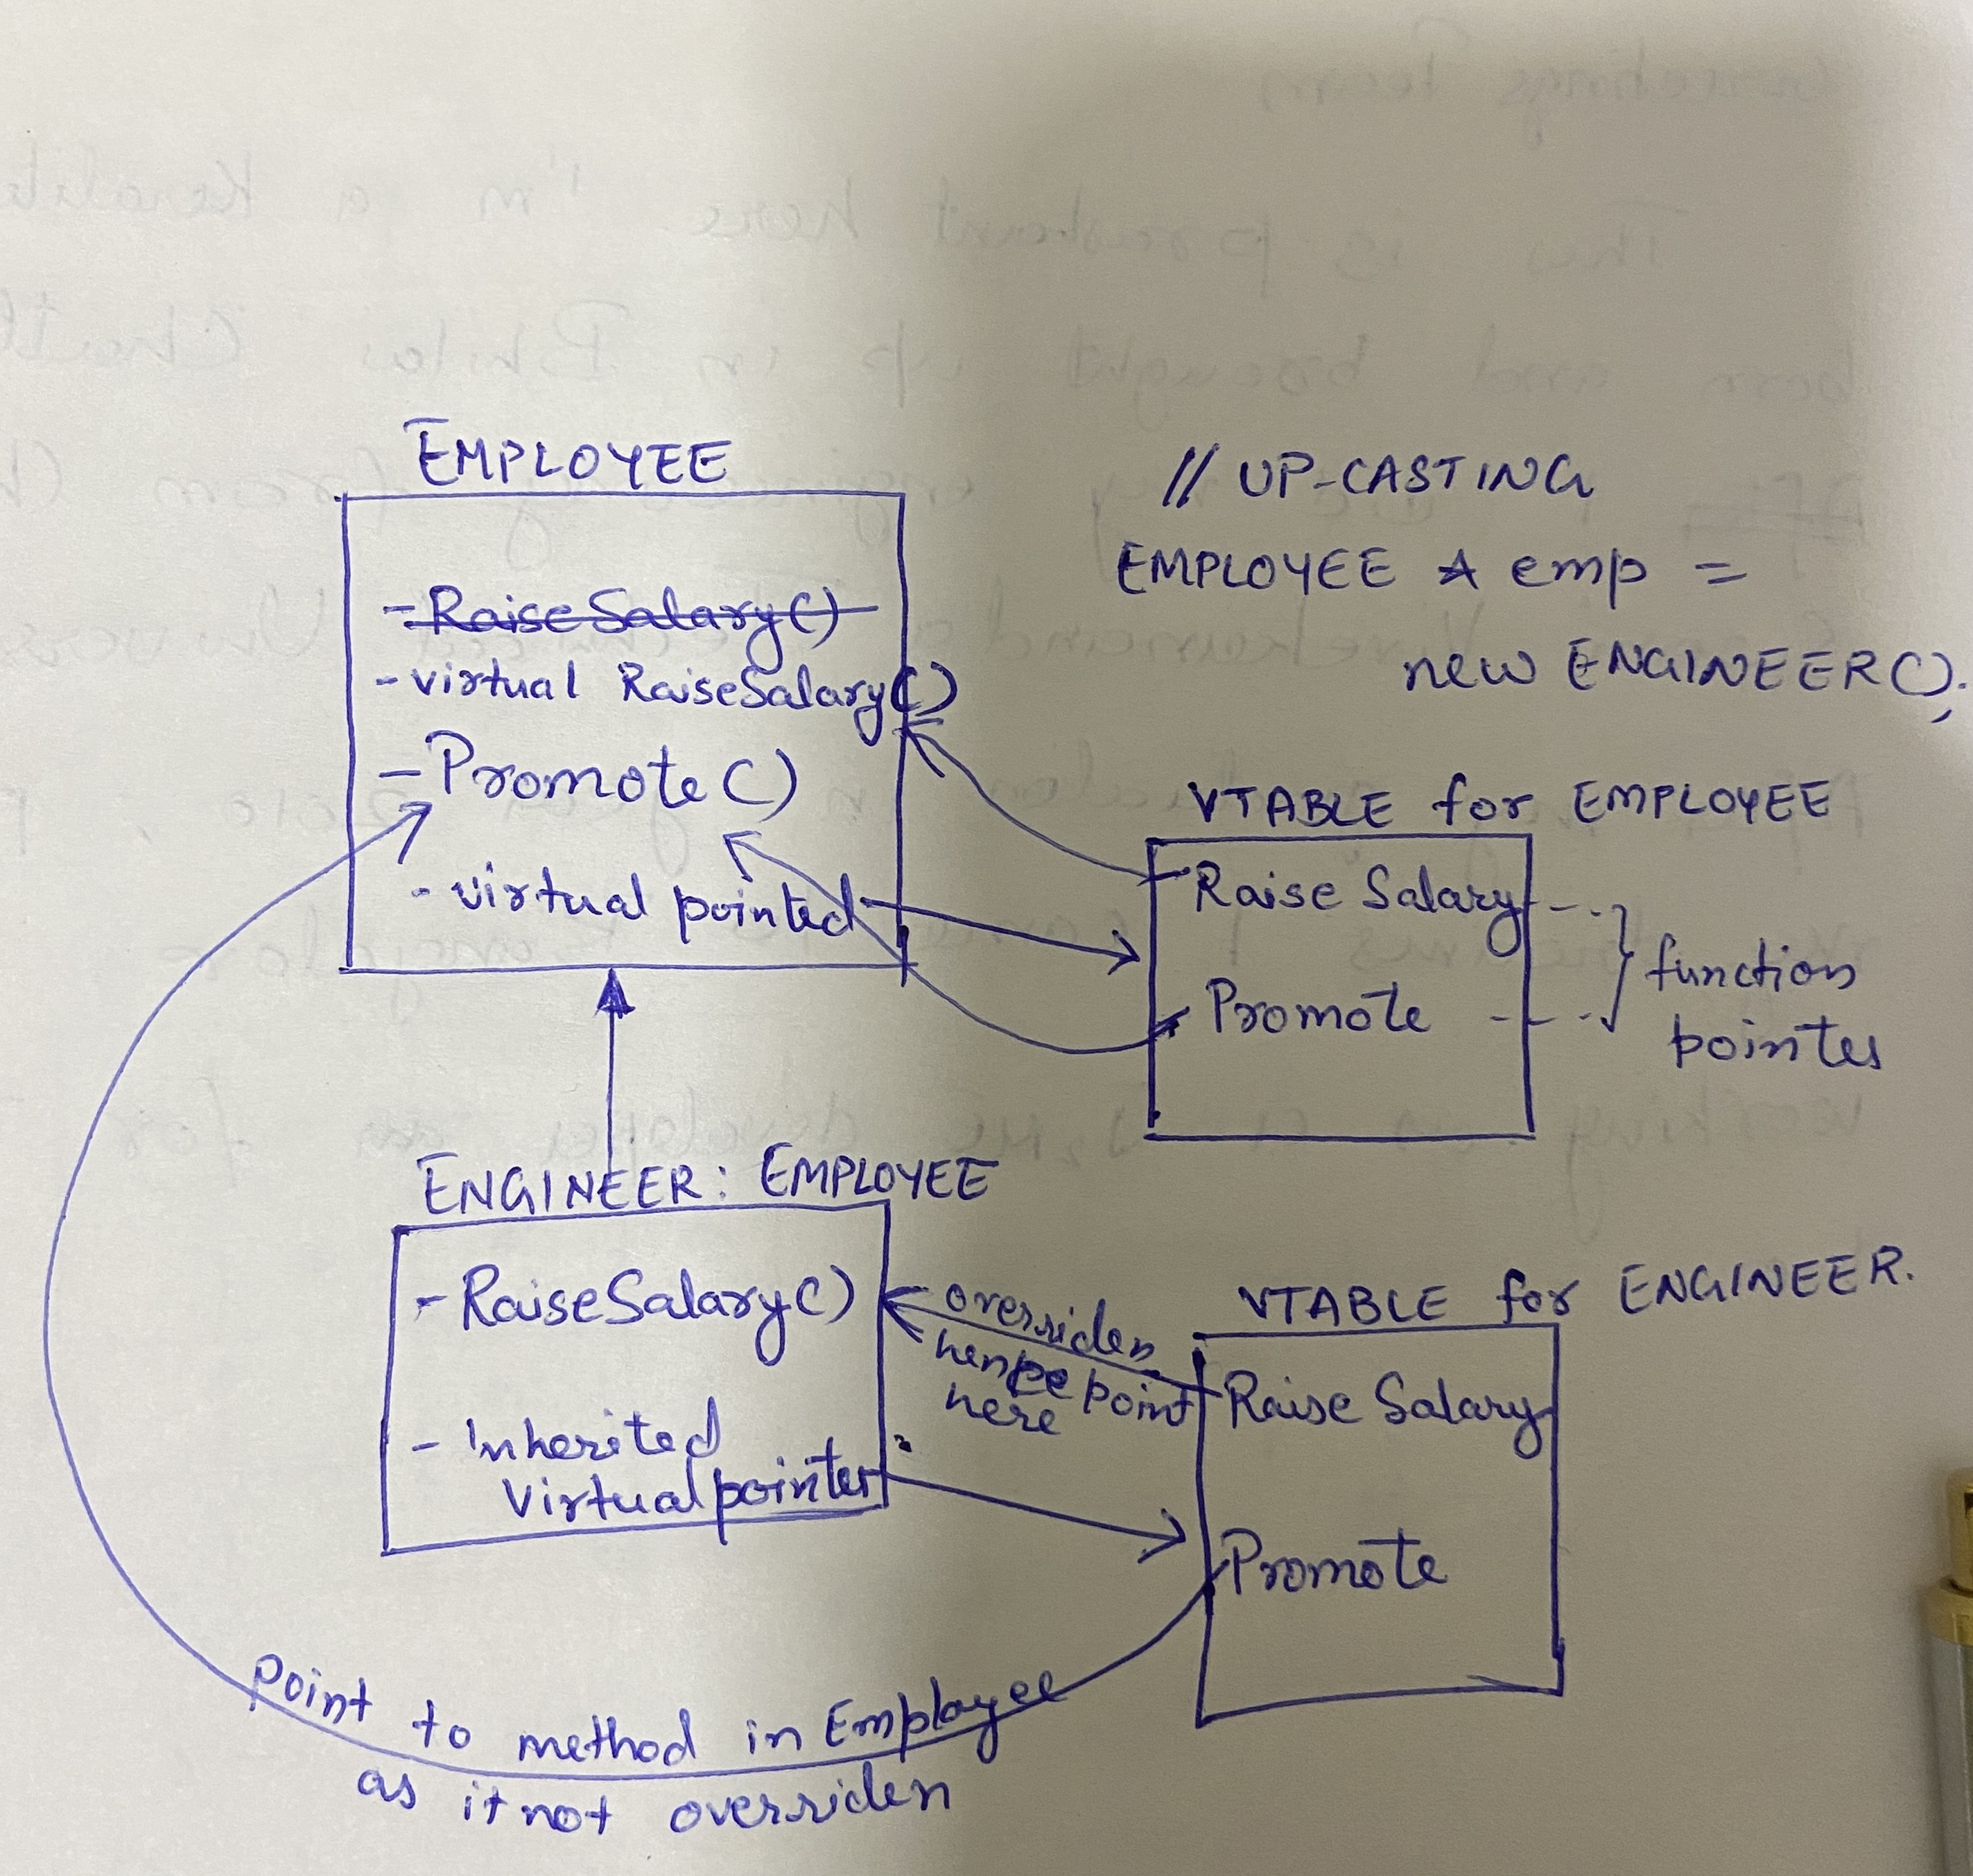 EMPLOYEE
- RaiseSalary()
- virtual RaiseSalary()
- Promote()
- virtual pointed
// UP-CASTING
EMPLOYEE * emp =
new ENGINEER();
VTABLE for EMPLOYEE
Raise Salary
Promote
function
pointes
ENGINEER: EMPLOYEE
- RaiseSalary()
- Inherited
Virtual pointer
overriden
hence point
here
VTABLE for ENGINEER.
Raise Salary
Promote
Point to method in Employee
as it not overriden